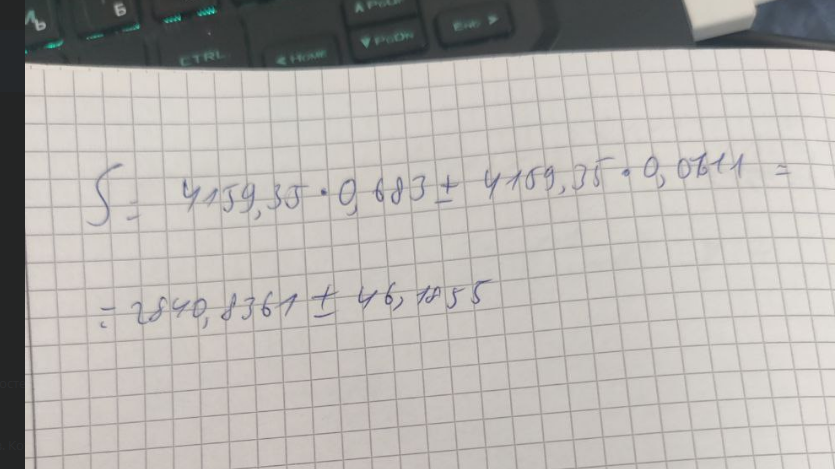 Б
CTRL
◄ Home
▲ PgUp
▼ PgDn
End ►
S = 4159,35 · 0,683 ± 4159,35 · 0,0111 =
= 2840,8361 ± 46,1855